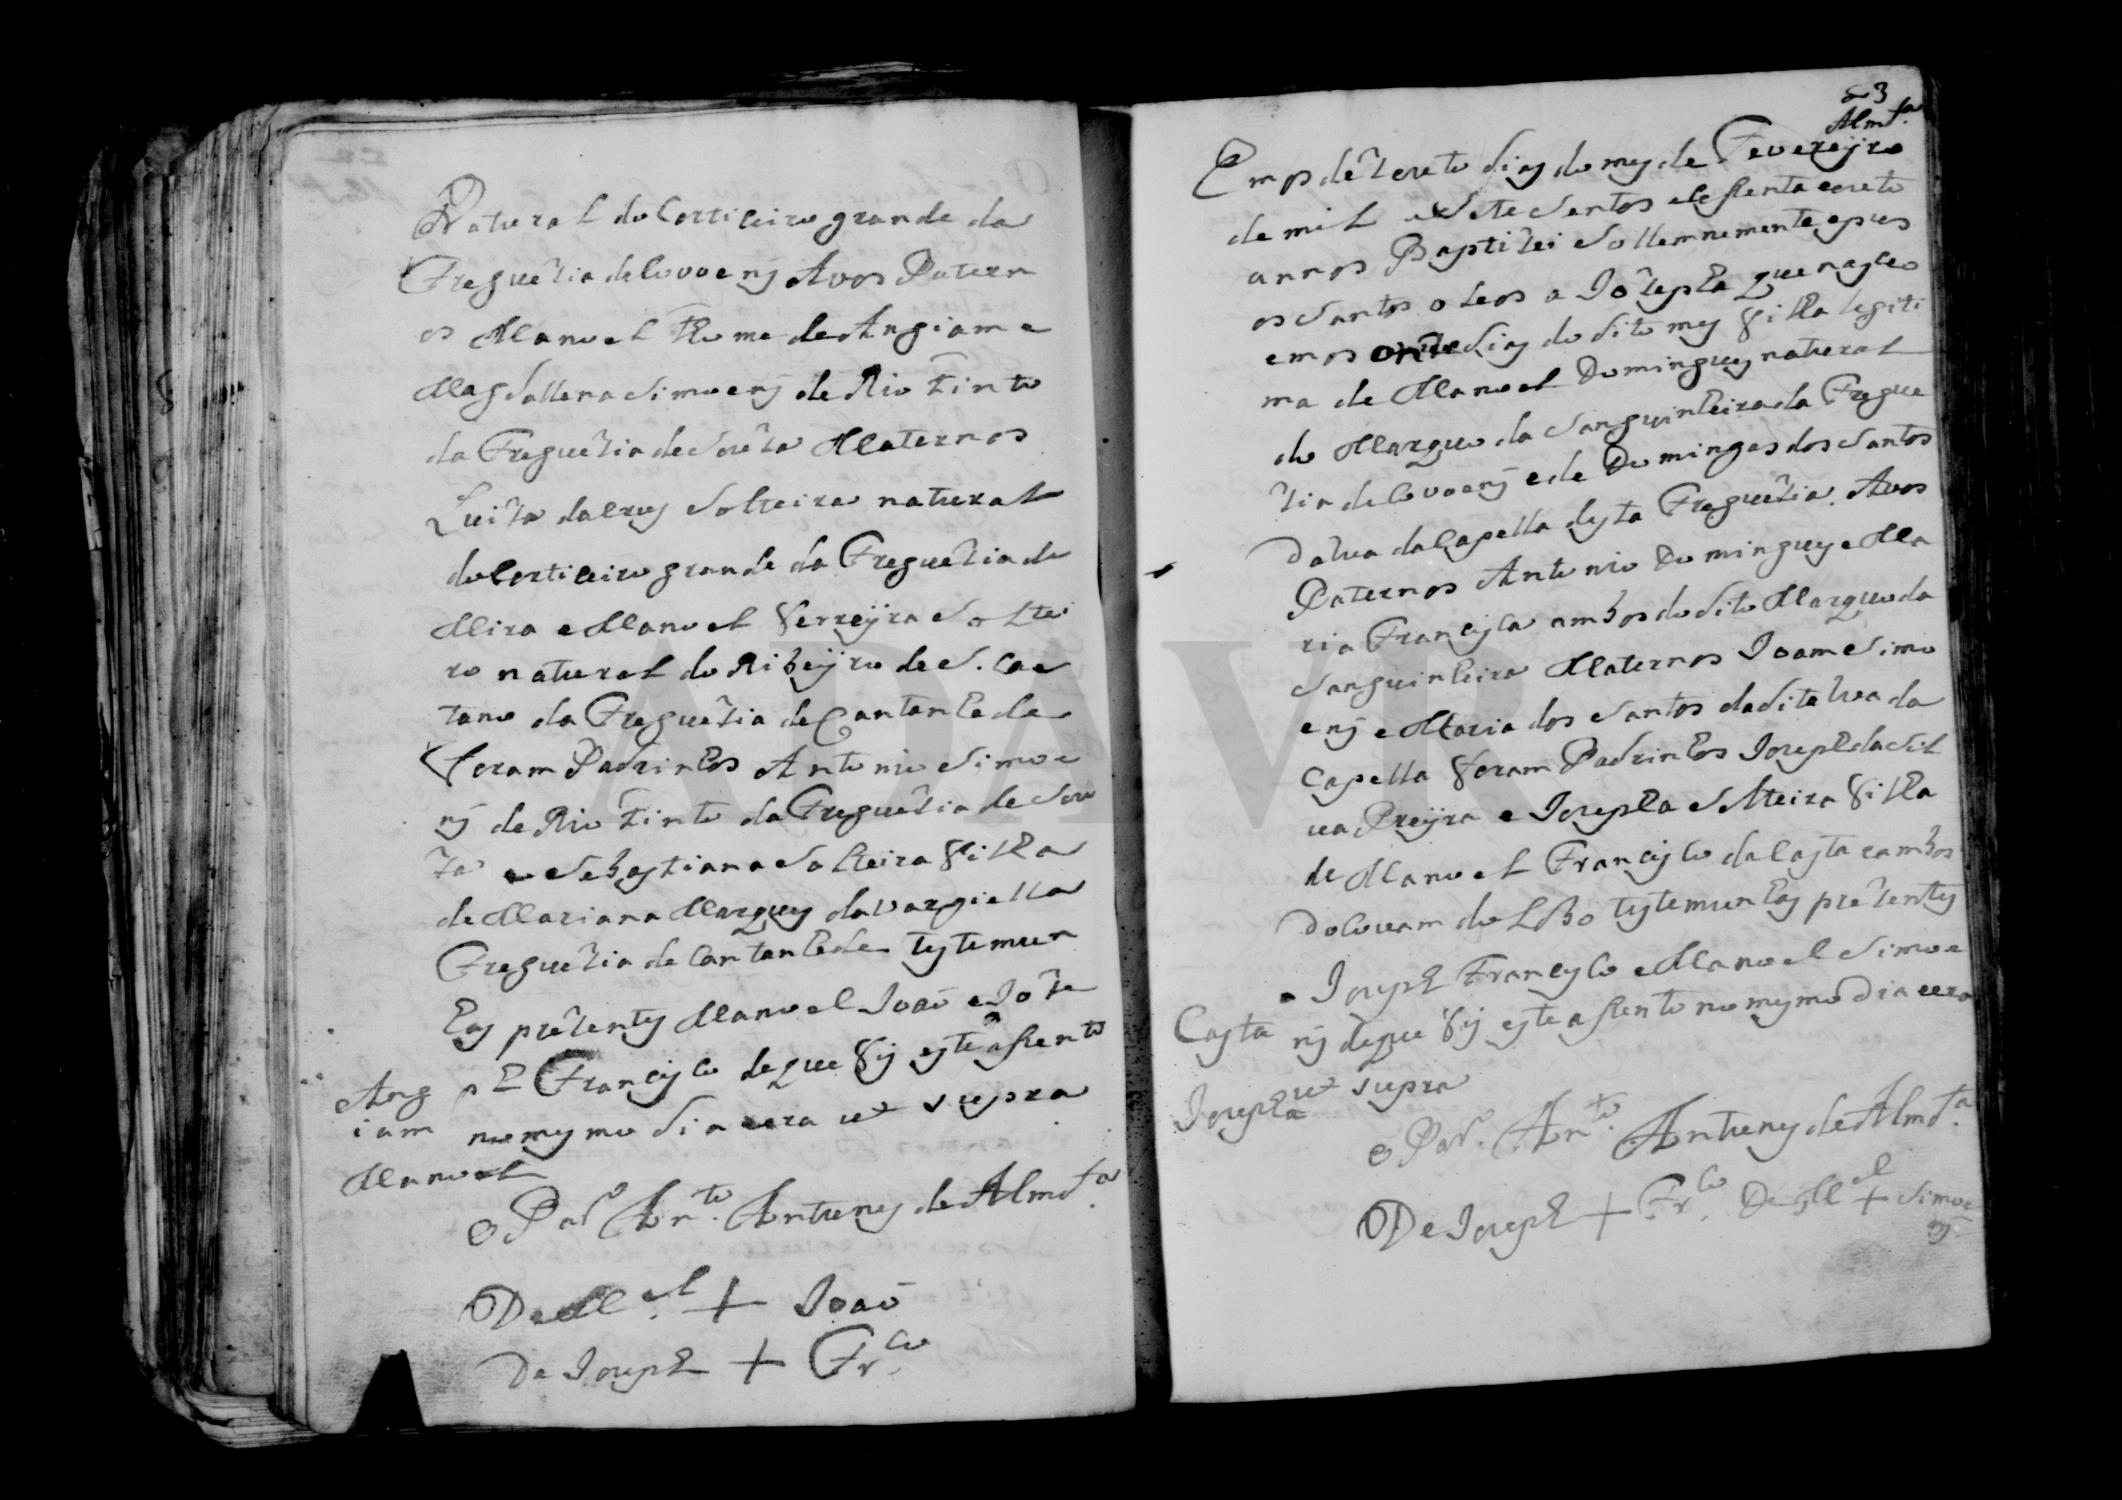 Natural do Corticeiro grande da
Freguezia de Covoens Avos Patern
os Manoel Thome de Angiam e
Magdallena Simoens de Rio Tinto
da Freguezia de Souza Maternos
Luiza da Crus Solteira natural
do Corticeiro grande da Freguezia de
Mira e Manoel Ferreyra Soltei
ro natural do Ribeyro de S. Cae
tano da Freguezia de Cantanhede
Foram Padrinhos Antonio Simoe
ns de Rio Tinto da Freguezia de Sou
za e Sebastiana Solteira filha
de Mariana Marques da Vargiella
Freguezia de Cantanhede testemun
has prezentes Manoel João e Joze
ph Francisco de que fis este assento
no mesmo dia e era ut supra
Ang
iam
Manoel
o Pad.o An.to Antunes de Alm.da
De M.el + João
De Joseph + Fr.co
53
Alm.da
Em os dezeoito dias do mes de Fevereyro
de mil e Setesentos e sessenta e oito
annos Baptizei Sollemnemente e pus
os Santos oleos a Jozepha que nasceo
em os onze dias do dito mes filha legiti
ma de Manoel Domingues natural
do Marquo da Sanguinheira da Fregue
zia de Covoens e de Domingas dos Santos
da lua da Capella desta Freguezia. Avos
Paternos Antonio Domingues e Ma
ria Francisca ambos do dito Marquo da
Sanguinheira Maternos Joam Simo
ens e Maria dos Santos da dita lua da
Capella foram Padrinhos Joseph da Sil
va Preyra e Josepha Solteira filha
de Manoel Francisco da Casta e ambos
do Covam do Lobo testemunhas prezentes
Joseph Francisco e Manoel Simoe
ns de que fis este assento no mesmo Dia e era
ut supra
Casta
Josepha
o Pad.o An.to Antunes de Alm.da
De Joseph + Fr.co De M.el + Simoe
ns
ADAVR